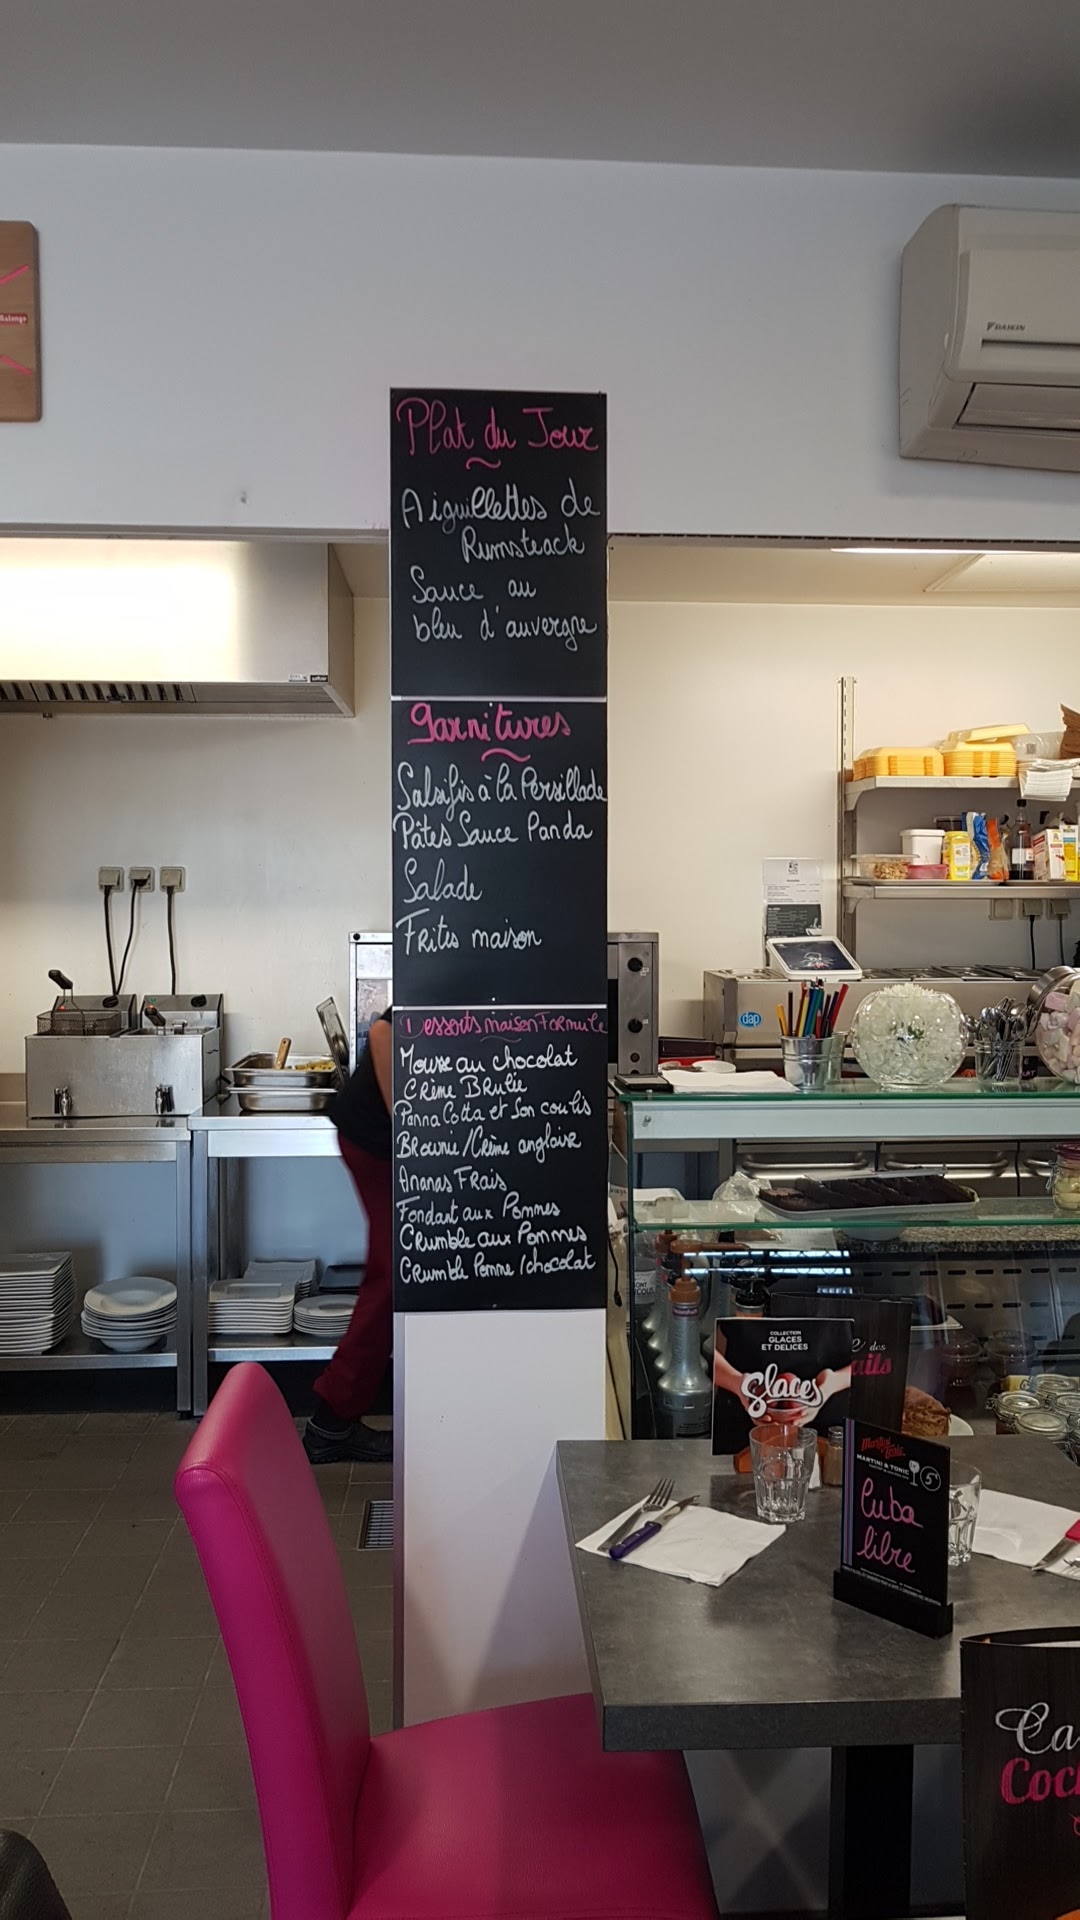 Malongo
DAIKIN
Plat du Jour
Aiguillettes de
Rumsteack
Sauce au
bleu d'auvergne
garnitures
Salsifis à la Persillade
Pâtes Sauce Panda
Salade
Frites maison
Desserts maison Formule
Mousse au chocolat
Crème Brulée
Panna Cotta et Son coulis
Brownie/Crème anglaise
Ananas Frais
Fondant aux Pommes
Crumble aux Pommes
Crumble Pomme/chocolat
dap
COLLECTION
GLACES
ET DELICES
Glaces
des
ails
Martini
Tonic
MARTINI & TONIC
5
Cuba
libre
Ca
Coc